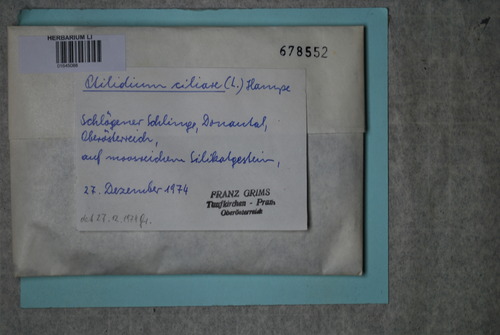 HERBARIUM LI
678552
Ptilidium ciliare (L.) Hampe
Schlögener Schlinge, Donautal,
Oberösterreich,
auf moosreichem Silikatgestein,
27. Dezember 1974
FRANZ GRIMS
Taufkirchen - Pram
Oberösterreich
det 27. 12. 1974